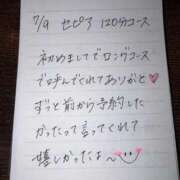 7/9 セピア 120分コース
初めましてでロングコース
で呼んでくれてありがと♥
ずっと前から予約した
かったって言ってくれて
嬉しかったよ〜